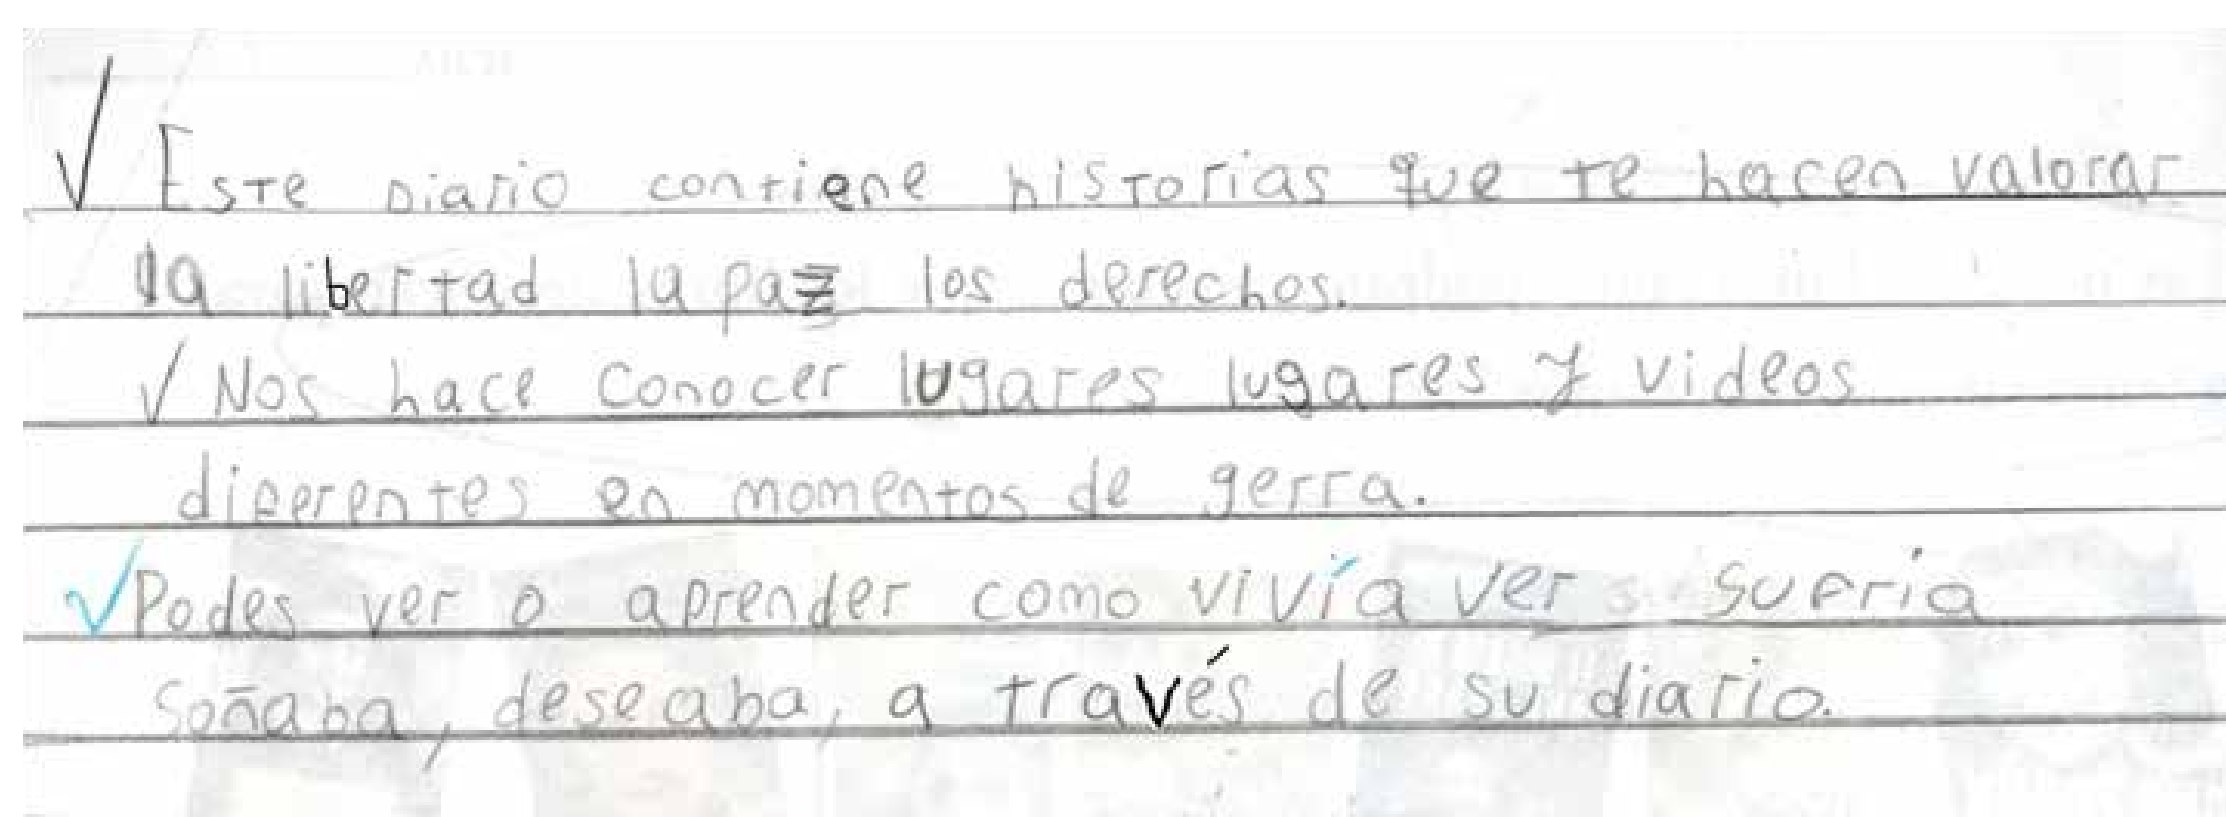 √ Este Diario contiene historias que te hacen valorar
la libertad la paz los derechos.
√ Nos hace conocer lugares lugares y videos
diferentes en momentos de gerra.
√ Podes ver o aprender como vivía ver sufria
soñaba, deseaba, a través de su diario.